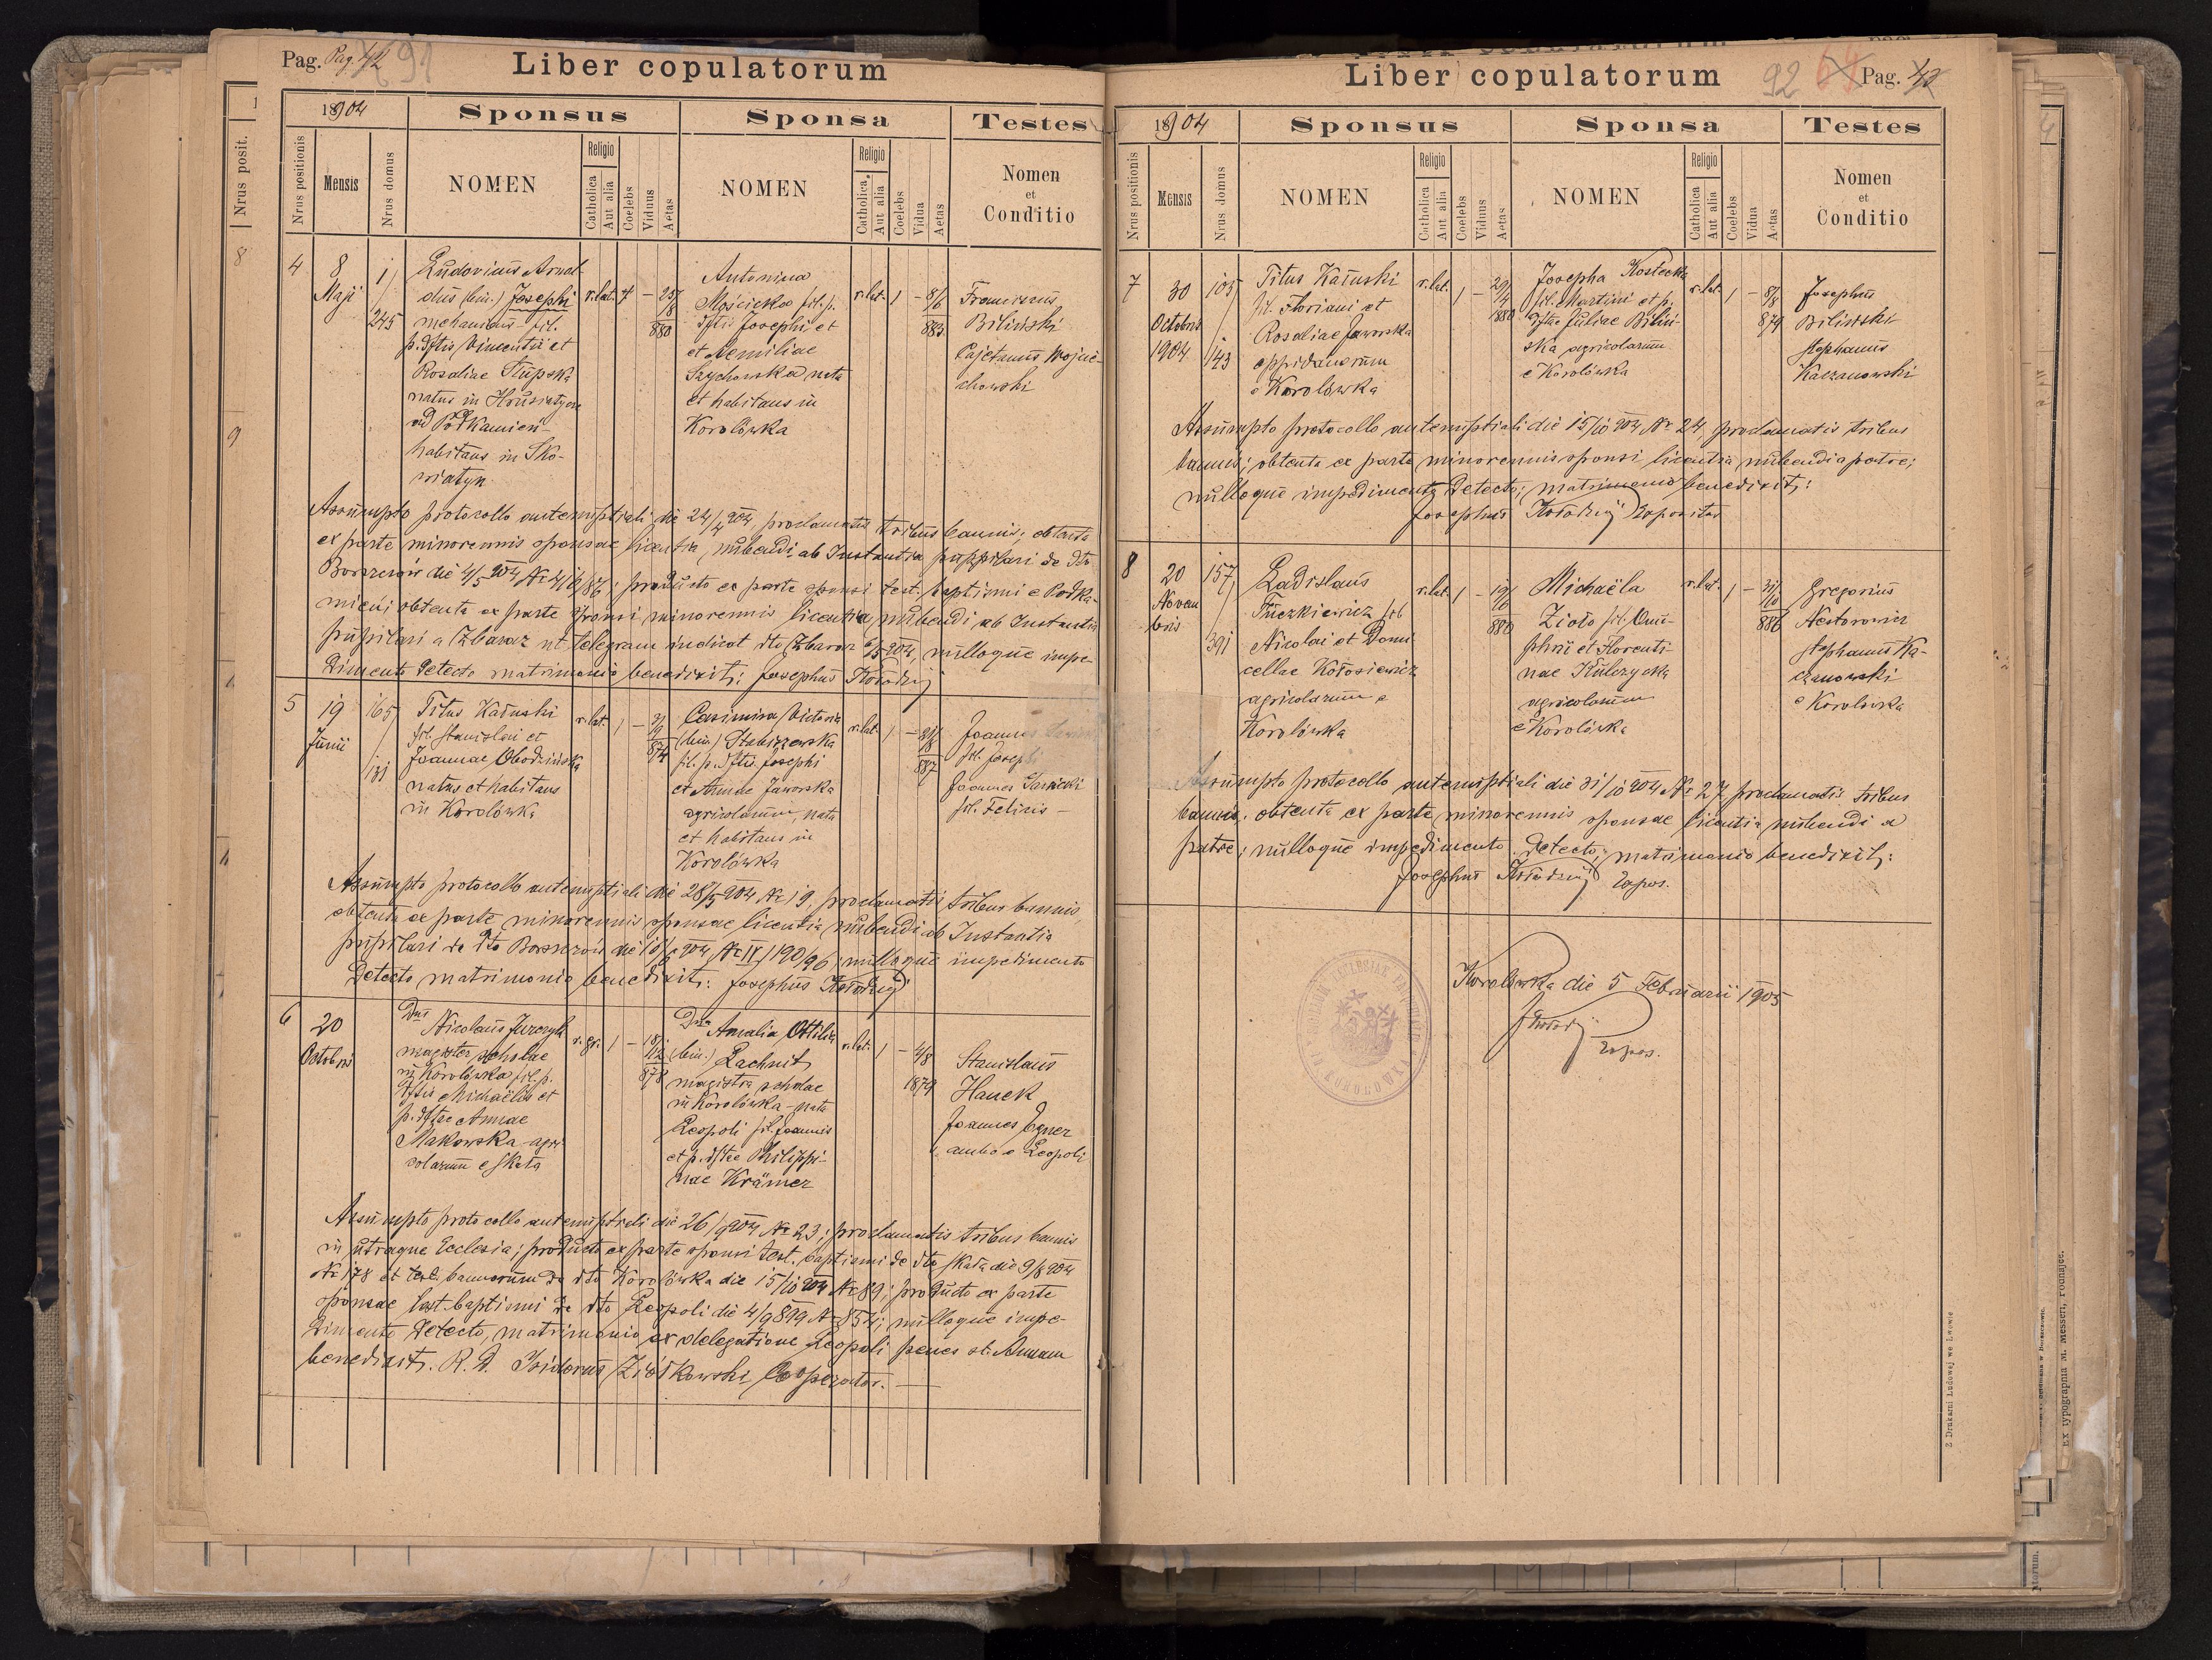 Pag. Pag. 42 91
Liber copulatorum
1904
Sponsus
Sponsa
Testes
Nrus positionis
Mensis
Nrus domus
NOMEN
Religio
Catholica
Aut alia
Coelebs
Viduus
Aetas
NOMEN
Religio
Catholica
Aut alia
Coelebs
Vidua
Aetas
Nomen
et
Conditio
4
8
Maji
1/
245
Ludovicus Arnol-
dus (bin.) Josephi
mechanicus fil.
p. dftis Vincentii et
Rosaliae Słupska
natus in Hrusiatycze
ad Podkamień
habitans in Sko-
wiatyn
r. lat.
25/8
880
Antonina
Mościcka fil. p.
dfti Josephi et
et Aemiliae
Szychowska nata
et habitans in
Korolówka
r. lat. 1 –
8/6
883
Franciscus
Biliński
Cajetanus Wojcie-
chowski
Assumpto protocollo antenuptiali die 24/4 904, proclamatis tribus bannis, obtenta
ex parte minorennis sponsae licentia nubendi ab Instantia pupilari de dto
Borszczów die 4/5 904; producto ex parte sponsi test. baptismi e Podka-
mień; obtenta ex parte sponsi minorennis licentia nubendi ab Instantia
pupilari a Zbaraz ut telegram indicat dto Zbaraz 6/5 904, nulloque impe-
dimento detecto matrimonio benedixit: Josephus Kołodzij
5
19
Junii
165
131
Titus Kałuski
fil. Stanislai et
Joannae Obodzińska
natus et habitans
in Korolówka
r. lat. 1 –
874
Casimira Victoria
(bin.) Staniszewska
fil. p. dfti Josephi
et Annae Jaworska
agricolarum, nata
et habitans in
Korolówka
r. lat. 1 –
887
Joannes
fil. Josephi
Joannes Sarnicki
fil. Felicis –
Assumpto protocollo antenuptiali die 28/5 904 Nr 19, proclamatis tribus bannis,
obtenta ex parte minorennis sponsae licentia nubendi ab Instantia
pupilari de dto Borszczów die 10/6 904 Nr IV/190/96; nulloque impedimento
detecto matrimonio benedixit: Josephus Kołodzij
6
20
Octobris
Dns Nicolaus Jurczyk
magister scholae
in Korolówka fil. p.
dftis Michaëlis et
p. dftae Annae
Makowska agri-
colarum e Skała
r. gr. 1 –
18/12
878
Dna Amalia Ottilia
(bin.) Lachnit
magistra scholae
in Korolówka – nata
Leopoli fil. Joannis
et p. dftae Philippi-
nae Krämer
r. lat. 1 –
4/8
1879
Stanislaus
Hauek
Joannes Egner
ambo e Leopoli
Assumpto protocollo antenuptiali die 26/9 904 Nr 23; proclamatis tribus bannis
in utraque Ecclesia; producto ex parte sponsi test. baptismi de dto Skała die 9/8 904
Nr 178 et test. bannorum de dto Korolówka die 15/10 904 Nr 89; producto ex parte
sponsae test. baptismi de dto Leopoli die 4/9 899 Nr 854; nulloque impe-
dimento detecto, matrimonio ex delegatione Leopoli penes st. Annam
benedixit. R. D. Isidorus Ziółkowski Cooperator.
Liber copulatorum
92 Pag. 43
1904
Sponsus
Sponsa
Testes
Nrus positionis
Mensis
Nrus domus
NOMEN
Religio
Catholica
Aut alia
Coelebs
Viduus
Aetas
NOMEN
Religio
Catholica
Aut alia
Coelebs
Vidua
Aetas
Nomen
et
Conditio
7
30
Octobris
1904
105
143
Titus Kałuski
fil. Floriani et
Rosaliae Jaworska
oppidanorum
e Korolówka
r. lat. 1 –
29/4
880
Josepha Kostecka
fil. Martini et p.
dftae Juliae Biliń-
ska agricolarum
e Korolówka
r. lat. 1 –
8/8
879
Josephus
Biliński
Stephanus
Kaczanowski
Assumpto protocollo antenuptiali die 15/10 904 Nr 24, proclamatis tribus
bannis; obtenta ex parte minorennis sponsi licentia nubendi a patre;
nulloque impedimento detecto; matrimonio benedixit:
Josephus Kołodzij Expositus
8
20
Novem
bris
157
391
Ladislaus
Tuczkiewicz fil.
Nicolai et Domi
cellae Kołosiewicz
agricolarum e
Korolówka
r. lat. 1 –
880
Michaëla
Zioło fil. Onu-
phrii et Florenti-
nae Kulczycka
agricolarum
e Korolówka
r. lat. 1 –
886
Gregorius
Nestorowicz
Stephanus Ka-
czanowski
e Korolówka
Assumpto protocollo antenuptiali die 31/10 904 Nr 27 proclamatis tribus
bannis; obtenta ex parte minorennis sponsae licentia nubendi a
patre; nulloque impedimento detecto; matrimonio benedixit:
Josephus Kołodzij Expos.
Korolówka die 5 Februarii 1905
Expos.
Z Drukarni Ludowej we Lwowie
Nrus posit.
8
9
Ex typographia M. Messert, rohnajec.